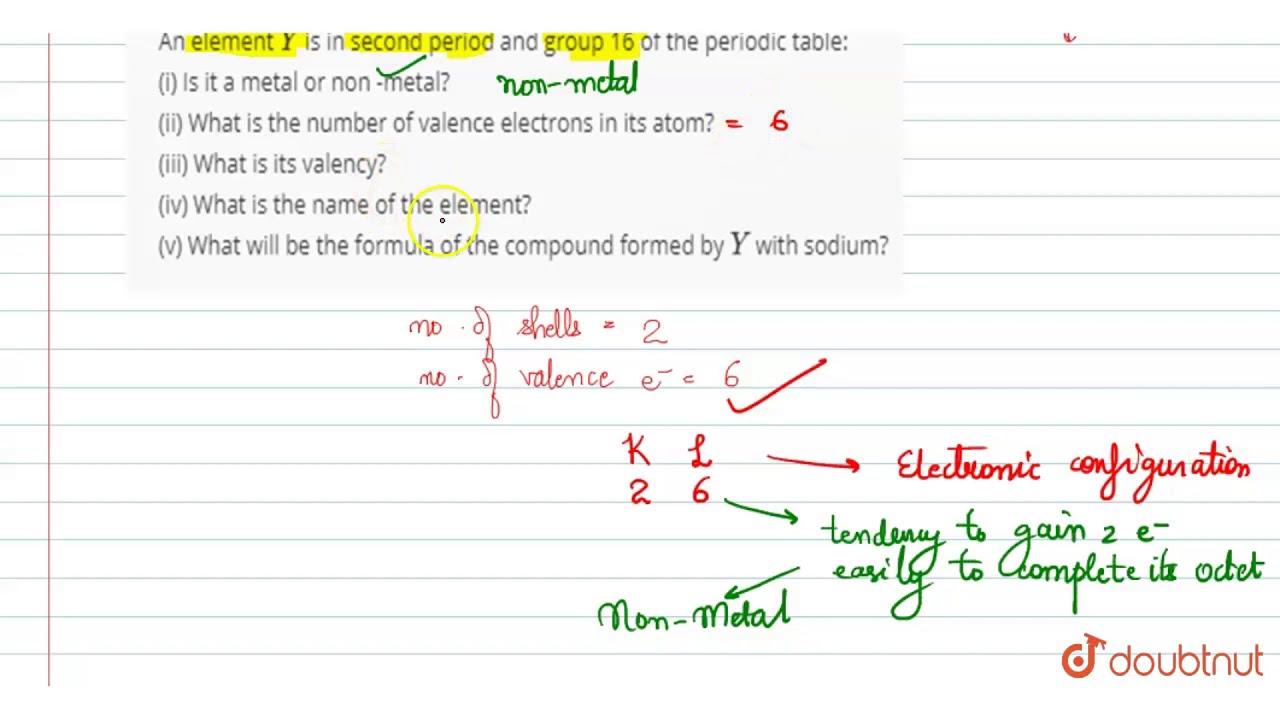 An element Y is in second period and group 16 of the periodic table:
(i) Is it a metal or non -metal? non-metal
(ii) What is the number of valence electrons in its atom? = 6
(iii) What is its valency?
(iv) What is the name of the element?
(v) What will be the formula of the compound formed by Y with sodium?
no. of shells = 2
no. of valence e⁻ = 6
K L
Electronic configuration
2 6
tendency to gain 2 e⁻
easily to complete its octet
Non-Metal
doubtnut